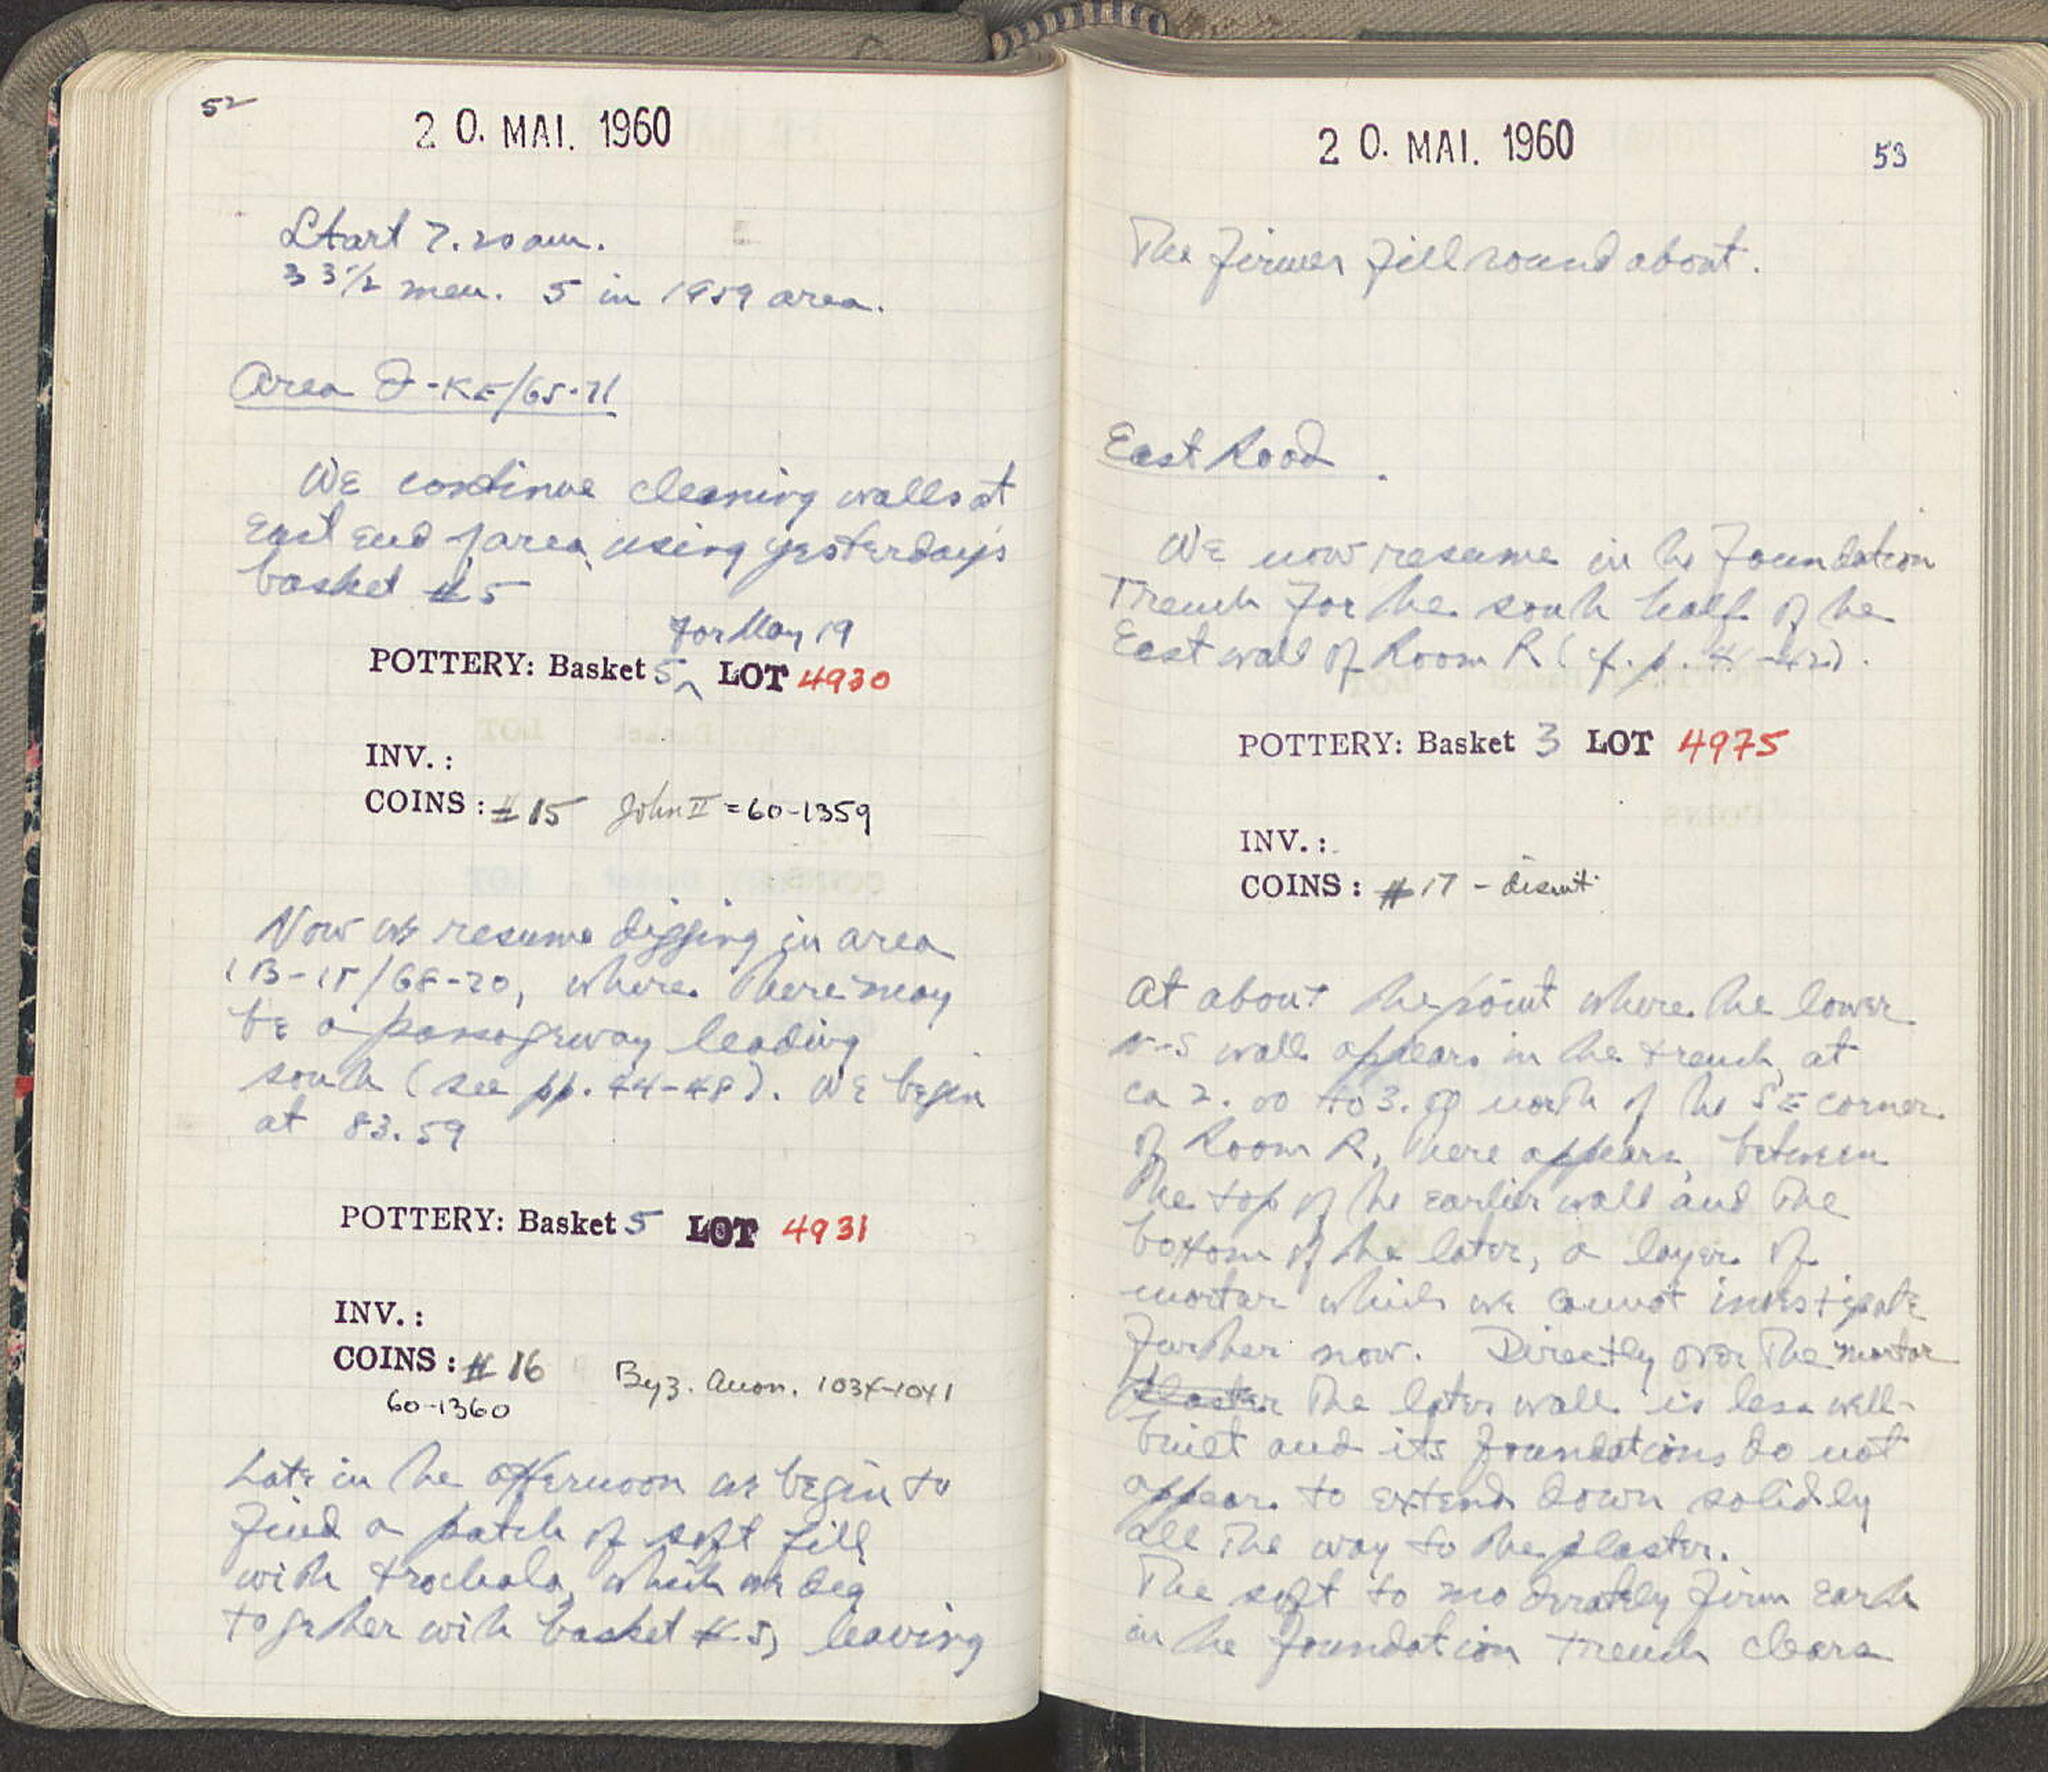 52
20. MAI. 1960
Start 7.20 am.
33 1/2 men. 5 in 1959 area.
Area I-KE/65-71
We continue cleaning walls at
East end of area, using yesterday's
basket #5
for May 19
POTTERY: Basket 5 ^ LOT 4930
INV.:
COINS: #15 John II = 60-1359
Now we resume digging in area
/68-70, where there may
be a passageway leading
south (see pp. 44-48). We begin
at 83.59
POTTERY: Basket 5 LOT 4931
INV.:
COINS: #16 Byz. Anon. 1034-1041
60-1360
Late in the afternoon we begin to
find a patch of soft fill
with trochala, which we dig
together with basket #5, leaving
20. MAI. 1960
53
The firmer fill round about.
East Road.
We now resume in the foundation
Trench for the south half of the
East wall of Room R (cf. p. 41-42).
POTTERY: Basket 3 LOT 4975
INV.:
COINS: #17 - disint.
At about the point where the lower
N-S wall appears in the trench, at
ca 2.00 to 3.00 north of the SE corner
of Room R, there appears, between
The top of the earlier wall and The
bottom of the later, a layer of
mortar which we cannot investigate
further now. Directly over The mortar
plaster The later wall is less well-
built and its foundations do not
appear to extend down solidly
all The way to the plaster.
The soft to moderately firm earth
in the foundation trench clears